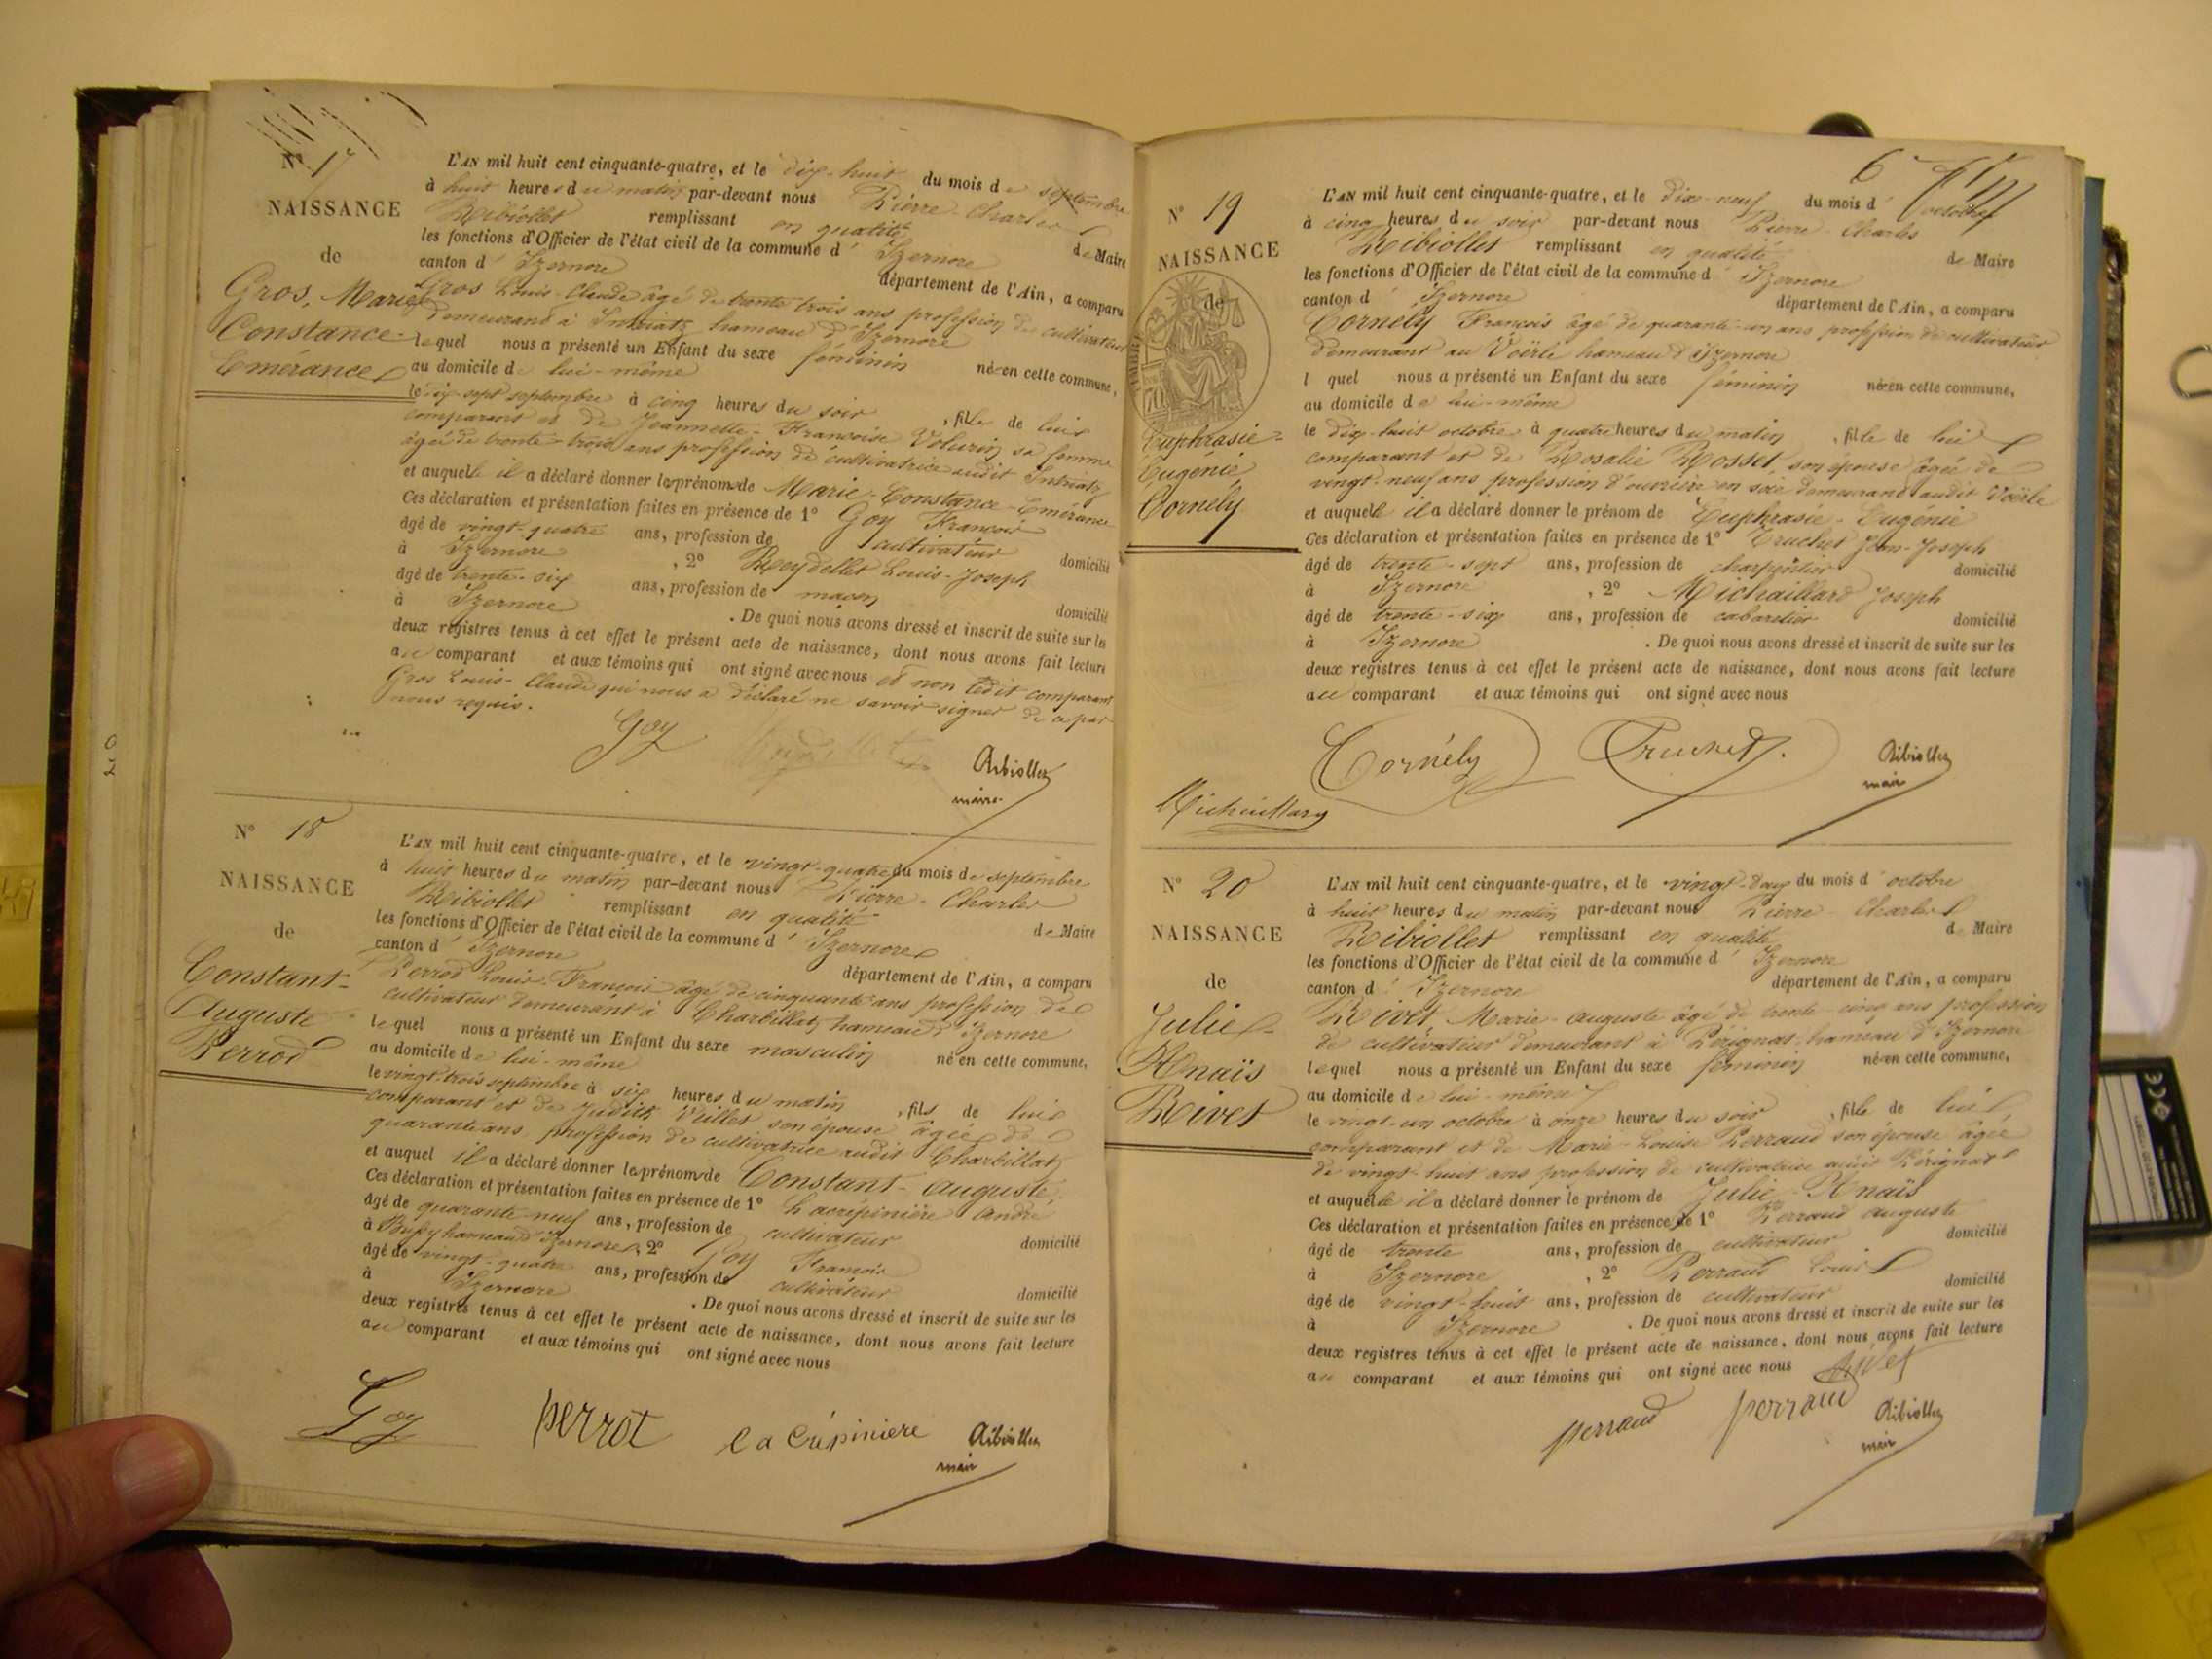 N° 17
NAISSANCE
de
Gros, Marie
Constance-
Emérance
L'AN mil huit cent cinquante-quatre, et le dix-huit du mois de septembre
à huit heures du matin par-devant nous Pierre-Charles
Ribiollet remplissant en qualité de Maire
les fonctions d'Officier de l'état civil de la commune d' Izernore
canton d' Izernore département de l'Ain, a comparu
Gros Louis-Claude âgé de trente trois ans profession de cultivateur
demeurant à Intriatz hameau d'Izernore
lequel nous a présenté un Enfant du sexe féminin née en cette commune,
au domicile de lui-même
le dix-sept septembre à cinq heures du soir, fille de lui
comparant et de Jeannette-Françoise Volurin sa femme
âgée de trente-trois ans profession de cultivatrice audit Intriatz
et auquelle il a déclaré donner les prénoms de Marie-Constance-Emérance
Ces déclaration et présentation faites en présence de 1° Goy François
âgé de vingt-quatre ans, profession de cultivateur domicilié
à Izernore, 2° Reydellet Louis-Joseph
âgé de trente-six ans, profession de maçon domicilié
à Izernore. De quoi nous avons dressé et inscrit de suite sur les
deux registres tenus à cet effet le présent acte de naissance, dont nous avons fait lecture
au comparant et aux témoins qui ont signé avec nous et non ledit comparant
Gros Louis-Claude qui nous a déclaré ne savoir signer de ce par
nous requis.
Goy Reydellet Ribiollet
maire
20
N° 18
NAISSANCE
de
Constant-
Auguste
Perrod
L'AN mil huit cent cinquante-quatre, et le vingt-quatre du mois de septembre
à huit heures du matin par-devant nous Pierre-Charles
Ribiollet remplissant en qualité de Maire
les fonctions d'Officier de l'état civil de la commune d' Izernore
canton d' Izernore département de l'Ain, a comparu
Perrod Louis-François âgé de cinquante ans profession de
cultivateur demeurant à Charbillat hameau d'Izernore
lequel nous a présenté un Enfant du sexe masculin né en cette commune,
au domicile de lui-même
le vingt-trois septembre à six heures du matin, fils de lui
comparant et de Judith Vuillet son épouse âgée de
quarante ans, profession de cultivatrice audit Charbillat
et auquel il a déclaré donner les prénoms de Constant-Auguste
Ces déclaration et présentation faites en présence de 1° Lacrepinière André
âgé de quarante neuf ans, profession de cultivateur domicilié
à Bussy hameau d'Izernore, 2° Goy François
âgé de vingt-quatre ans, profession de cultivateur domicilié
à Izernore. De quoi nous avons dressé et inscrit de suite sur les
deux registres tenus à cet effet le présent acte de naissance, dont nous avons fait lecture
au comparant et aux témoins qui ont signé avec nous
Goy perrot la Crépiniere Ribiollet
maire
6
N° 19
NAISSANCE
de
70
Euphrasie-
Eugénie
Cornély
L'AN mil huit cent cinquante-quatre, et le dix-neuf du mois d' octobre
à cinq heures du soir par-devant nous Pierre-Charles
Ribiollet remplissant en qualité de Maire
les fonctions d'Officier de l'état civil de la commune d' Izernore
canton d' Izernore département de l'Ain, a comparu
Cornély François âgé de quarante-un ans profession de cultivateur
demeurant au Voërle hameau d'Izernore
l quel nous a présenté un Enfant du sexe féminin née en cette commune,
au domicile de lui-même
le dix-huit octobre à quatre heures du matin, fille de lui
comparant et de Rosalie Rosset son épouse âgée de
vingt-neuf ans profession d'ouvrière en soie demeurant audit Voërle
et auquelle il a déclaré donner le prénom de Euphrasie-Eugénie
Ces déclaration et présentation faites en présence de 1° Truchet Jean-Joseph
âgé de trente-sept ans, profession de charpentier domicilié
à Izernore, 2° Michaillard Joseph
âgé de trente-six ans, profession de cabaretier domicilié
à Izernore. De quoi nous avons dressé et inscrit de suite sur les
deux registres tenus à cet effet le présent acte de naissance, dont nous avons fait lecture
au comparant et aux témoins qui ont signé avec nous
Cornély Truchet Ribiollet
maire
Michaillard
N° 20
NAISSANCE
de
Julie-
Anaïs
Rivet
L'AN mil huit cent cinquante-quatre, et le vingt-deux du mois d' octobre
à huit heures du matin par-devant nous Pierre-Charles
Ribiollet remplissant en qualité de Maire
les fonctions d'Officier de l'état civil de la commune d' Izernore
canton d' Izernore département de l'Ain, a comparu
Rivet Marie-Auguste âgé de trente-cinq ans profession
de cultivateur demeurant à Pérignat hameau d'Izernore
lequel nous a présenté un Enfant du sexe féminin née en cette commune,
au domicile de lui-même
le vingt-un octobre à onze heures du soir, fille de lui
comparant et de Marie-Louise Perraud son épouse âgée
de vingt-huit ans profession de cultivatrice audit Pérignat
et auquelle il a déclaré donner le prénom de Julie-Anaïs
Ces déclaration et présentation faites en présence de 1° Perraud Auguste
âgé de trente ans, profession de cultivateur domicilié
à Izernore, 2° Perraud Louis
âgé de vingt-huit ans, profession de cultivateur domicilié
à Izernore. De quoi nous avons dressé et inscrit de suite sur les
deux registres tenus à cet effet le présent acte de naissance, dont nous avons fait lecture
au comparant et aux témoins qui ont signé avec nous Rivet
perraud perraud Ribiollet
maire